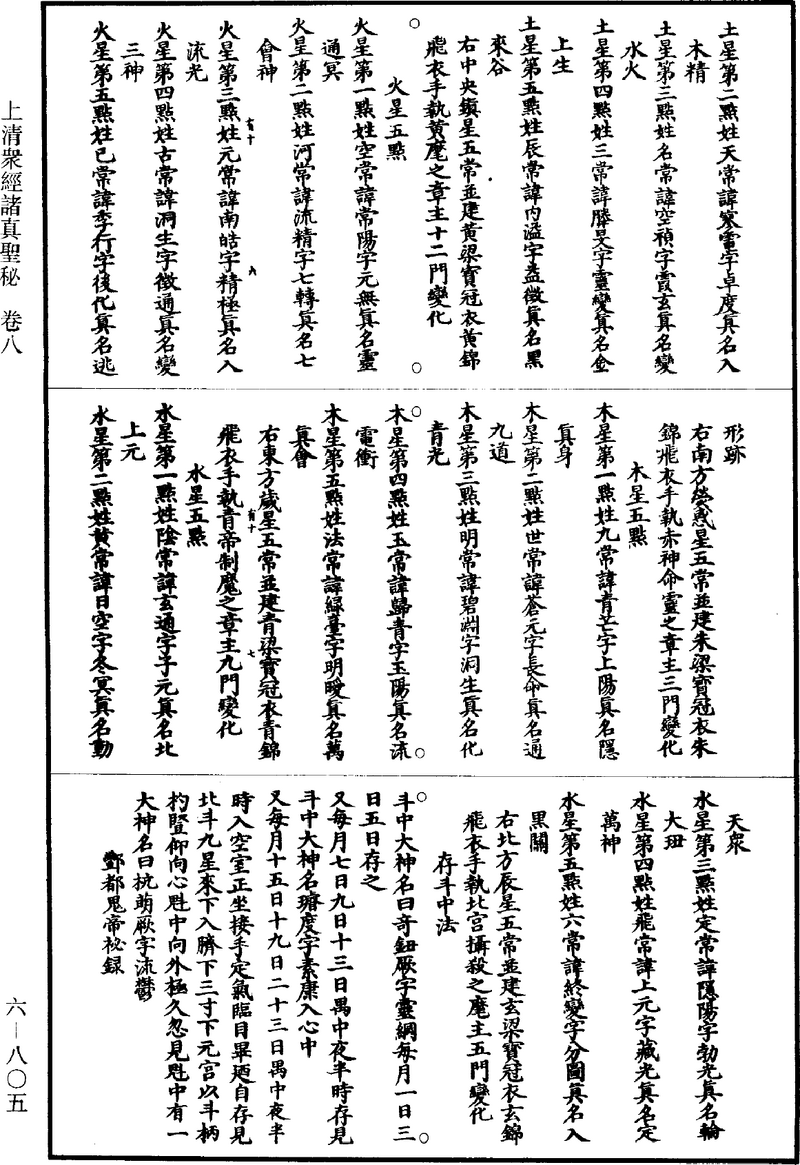 土星第二點姓天常諱寒電字卓度真名入
木精
土星第三點姓名常諱空禎字霞玄真名變
水火
土星第四點姓三常諱勝旻字靈變真名金
上生
土星第五點姓辰常諱內溢字益徵真名黑
來谷
右中央鎮星五常並建黃梁寶冠衣黃錦
飛衣手執黃麾之章主十二門變化
火星五點
火星第一點姓空常諱常陽字元無真名靈
通冥
火星第二點姓河常諱流精字七轉真名七
會神
火星第三點姓元常諱南皓字精極真名入
流光
火星第四點姓古常諱洞生字徵通真名變
三神
火星第五點姓巳常諱季行字後化真名逃
形跡
右南方熒惑星五常並建朱梁寶冠衣朱
錦飛衣手執赤神命靈之章主三門變化
木星五點
木星第一點姓九常諱青芒字上陽真名隱
真身
木星第二點姓世常諱蒼元字長命真名通
九道
木星第三點姓明常諱碧淵字洞生真名化
青光
木星第四點姓玉常諱歸青字玉陽真名流
電衝
木星第五點姓法常諱綠臺字明曖真名萬
真會
右東方歲星五常並建青梁寶冠衣青錦
飛衣手執青帝制魔之章主九門變化
水星五點
水星第一點姓陰常諱玄通字子元真名北
上元
水星第二點姓黃常諱日空字冬冥真名動
天眾
水星第三點姓定常諱隱陽字勃光真名輪
大丑
水星第四點姓飛常諱上元字藏光真名定
萬神
水星第五點姓六常諱終變字分圖真名入
黑關
右北方辰星五常並建玄梁寶冠衣玄錦
飛衣手執北宮攝殺之麾主五門變化
存斗中法
斗中大神名曰奇鈕厥字靈綱每月一日三
日五日存之
又每月七日九日十三日禺中夜半時存見
斗中大神名璿度字素康入心中
又每月十五日十九日二十三日禺中夜半
時入空室正坐接手定氣臨目畢迺自存見
北斗九星來下入臍下三寸下元宮以斗柄
杓豎仰向心魁中向外極久忽見魁中有一
大神名曰抗萌厥字流鬱
酆都鬼帝祕錄
上清衆經諸真聖秘　卷八
六—八〇五